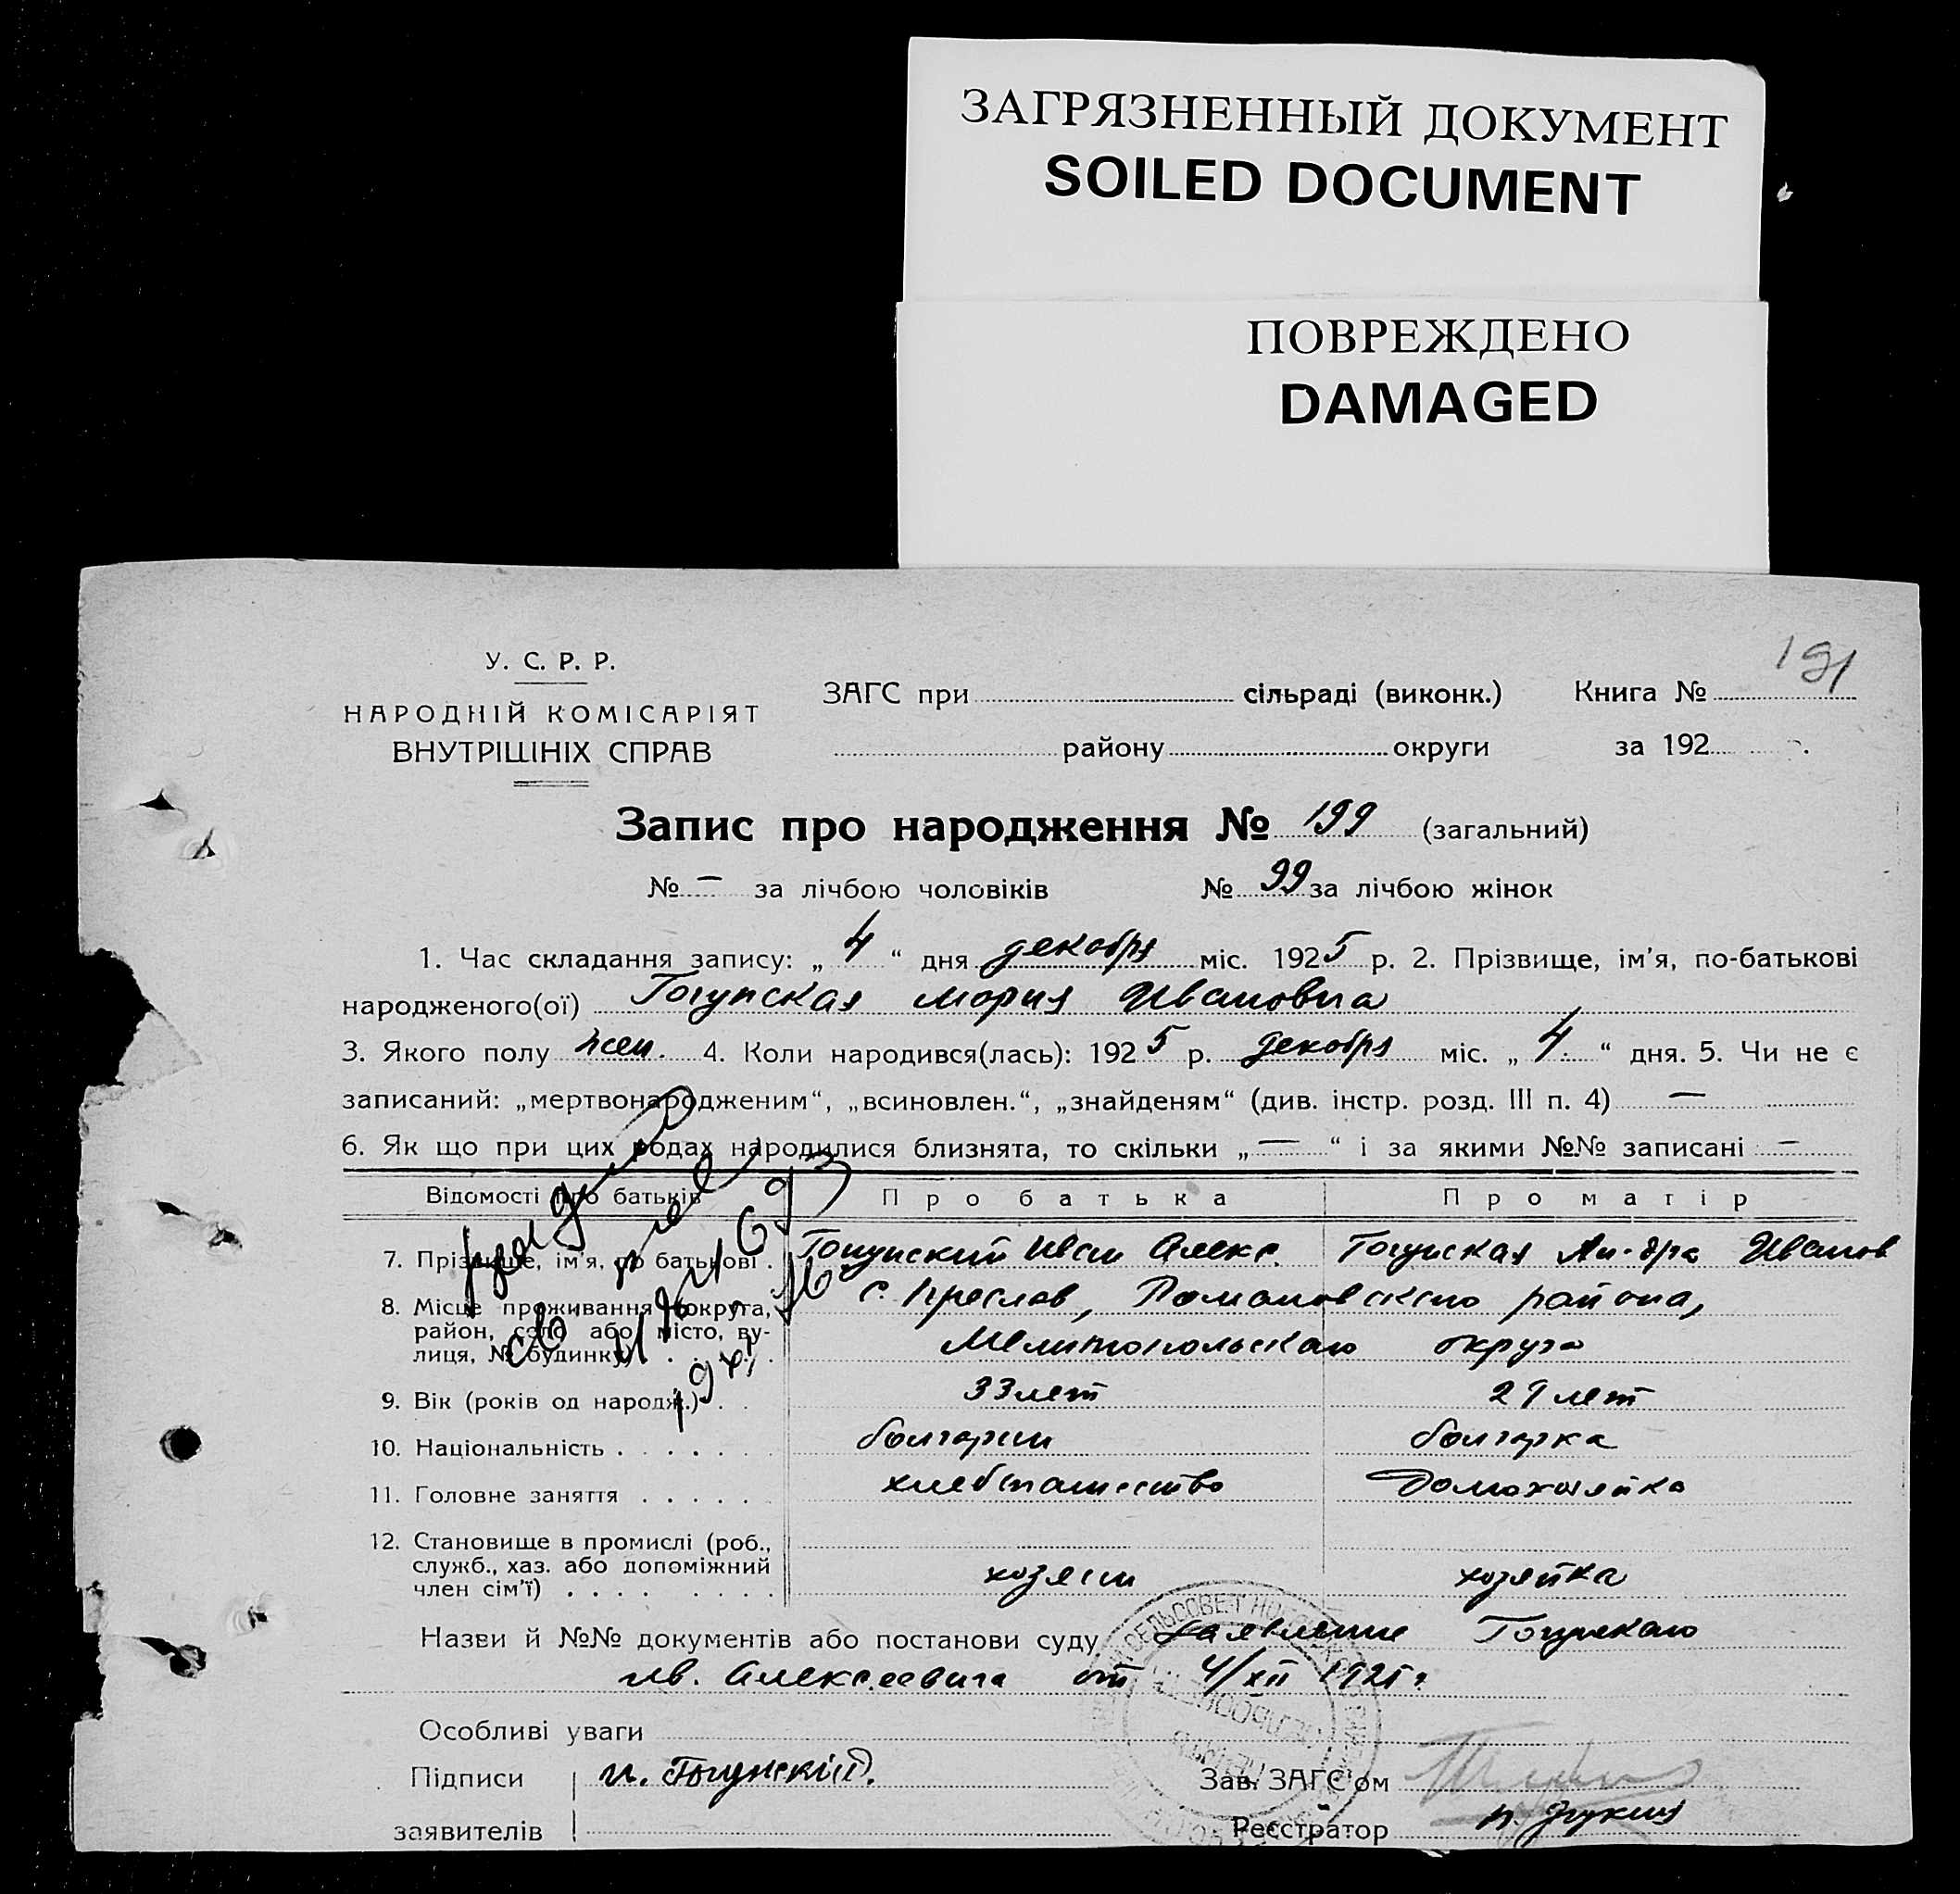 ЗАГРЯЗНЕННЫЙ ДОКУМЕНТ
SOILED DOCUMENT
ПОВРЕЖДЕНО
DAMAGED
191
У. С. Р. Р.
НАРОДНІЙ КОМІСАРІЯТ
ВНУТРІШНІХ СПРАВ
ЗАГС при сільраді (виконк.) Книга №
району округи за 192 .
Запис про народження № 199 (загальний)
№ — за лічбою чоловіків № 99 за лічбою жінок
1. Час складання запису: „ 4 “ дня декабря міс. 1925 р. 2. Прізвище, ім'я, по-батькові
народженого(ої) Мария Ивановна
3. Якого полу жен. 4. Коли народився(лась): 1925 р. декабря міс. „ 4. “ дня. 5. Чи не є
записаний: „мертвонародженим“, „всиновлен.“, „знайденям“ (див. інстр. розд. III п. 4) —
6. Як що при цих родах народилися близнята, то скільки „ — “ і за якими №№ записані —
Відомості про батьків Про батька Про матір
7. Прізвище, ім'я, по батькові . Иван Алекс. Иванов
8. Місце проживання (округа, с. Преслав, Романовского района,
район, село або місто, ву-
лиця, № будинку) . . . . Мелитопольского округа
9. Вік (років од народж.) . . 33 лет 29 лет
10. Національність . . . . . . . болгарин болгарка
11. Головне заняття . . . . . . хлебопашество Домохозяйка
12. Становище в промислі (роб.,
служб., хаз. або допоміжний
член сім'ї) . . . . . . . . хозяин хозяйка
Назви й №№ документів або постанови суду Заявление
Ив. Алексеевича от 4/XII 1925 г.
Особливі уваги
Підписи И.
Зав. ЗАГС'ом
заявителів
Реєстратор